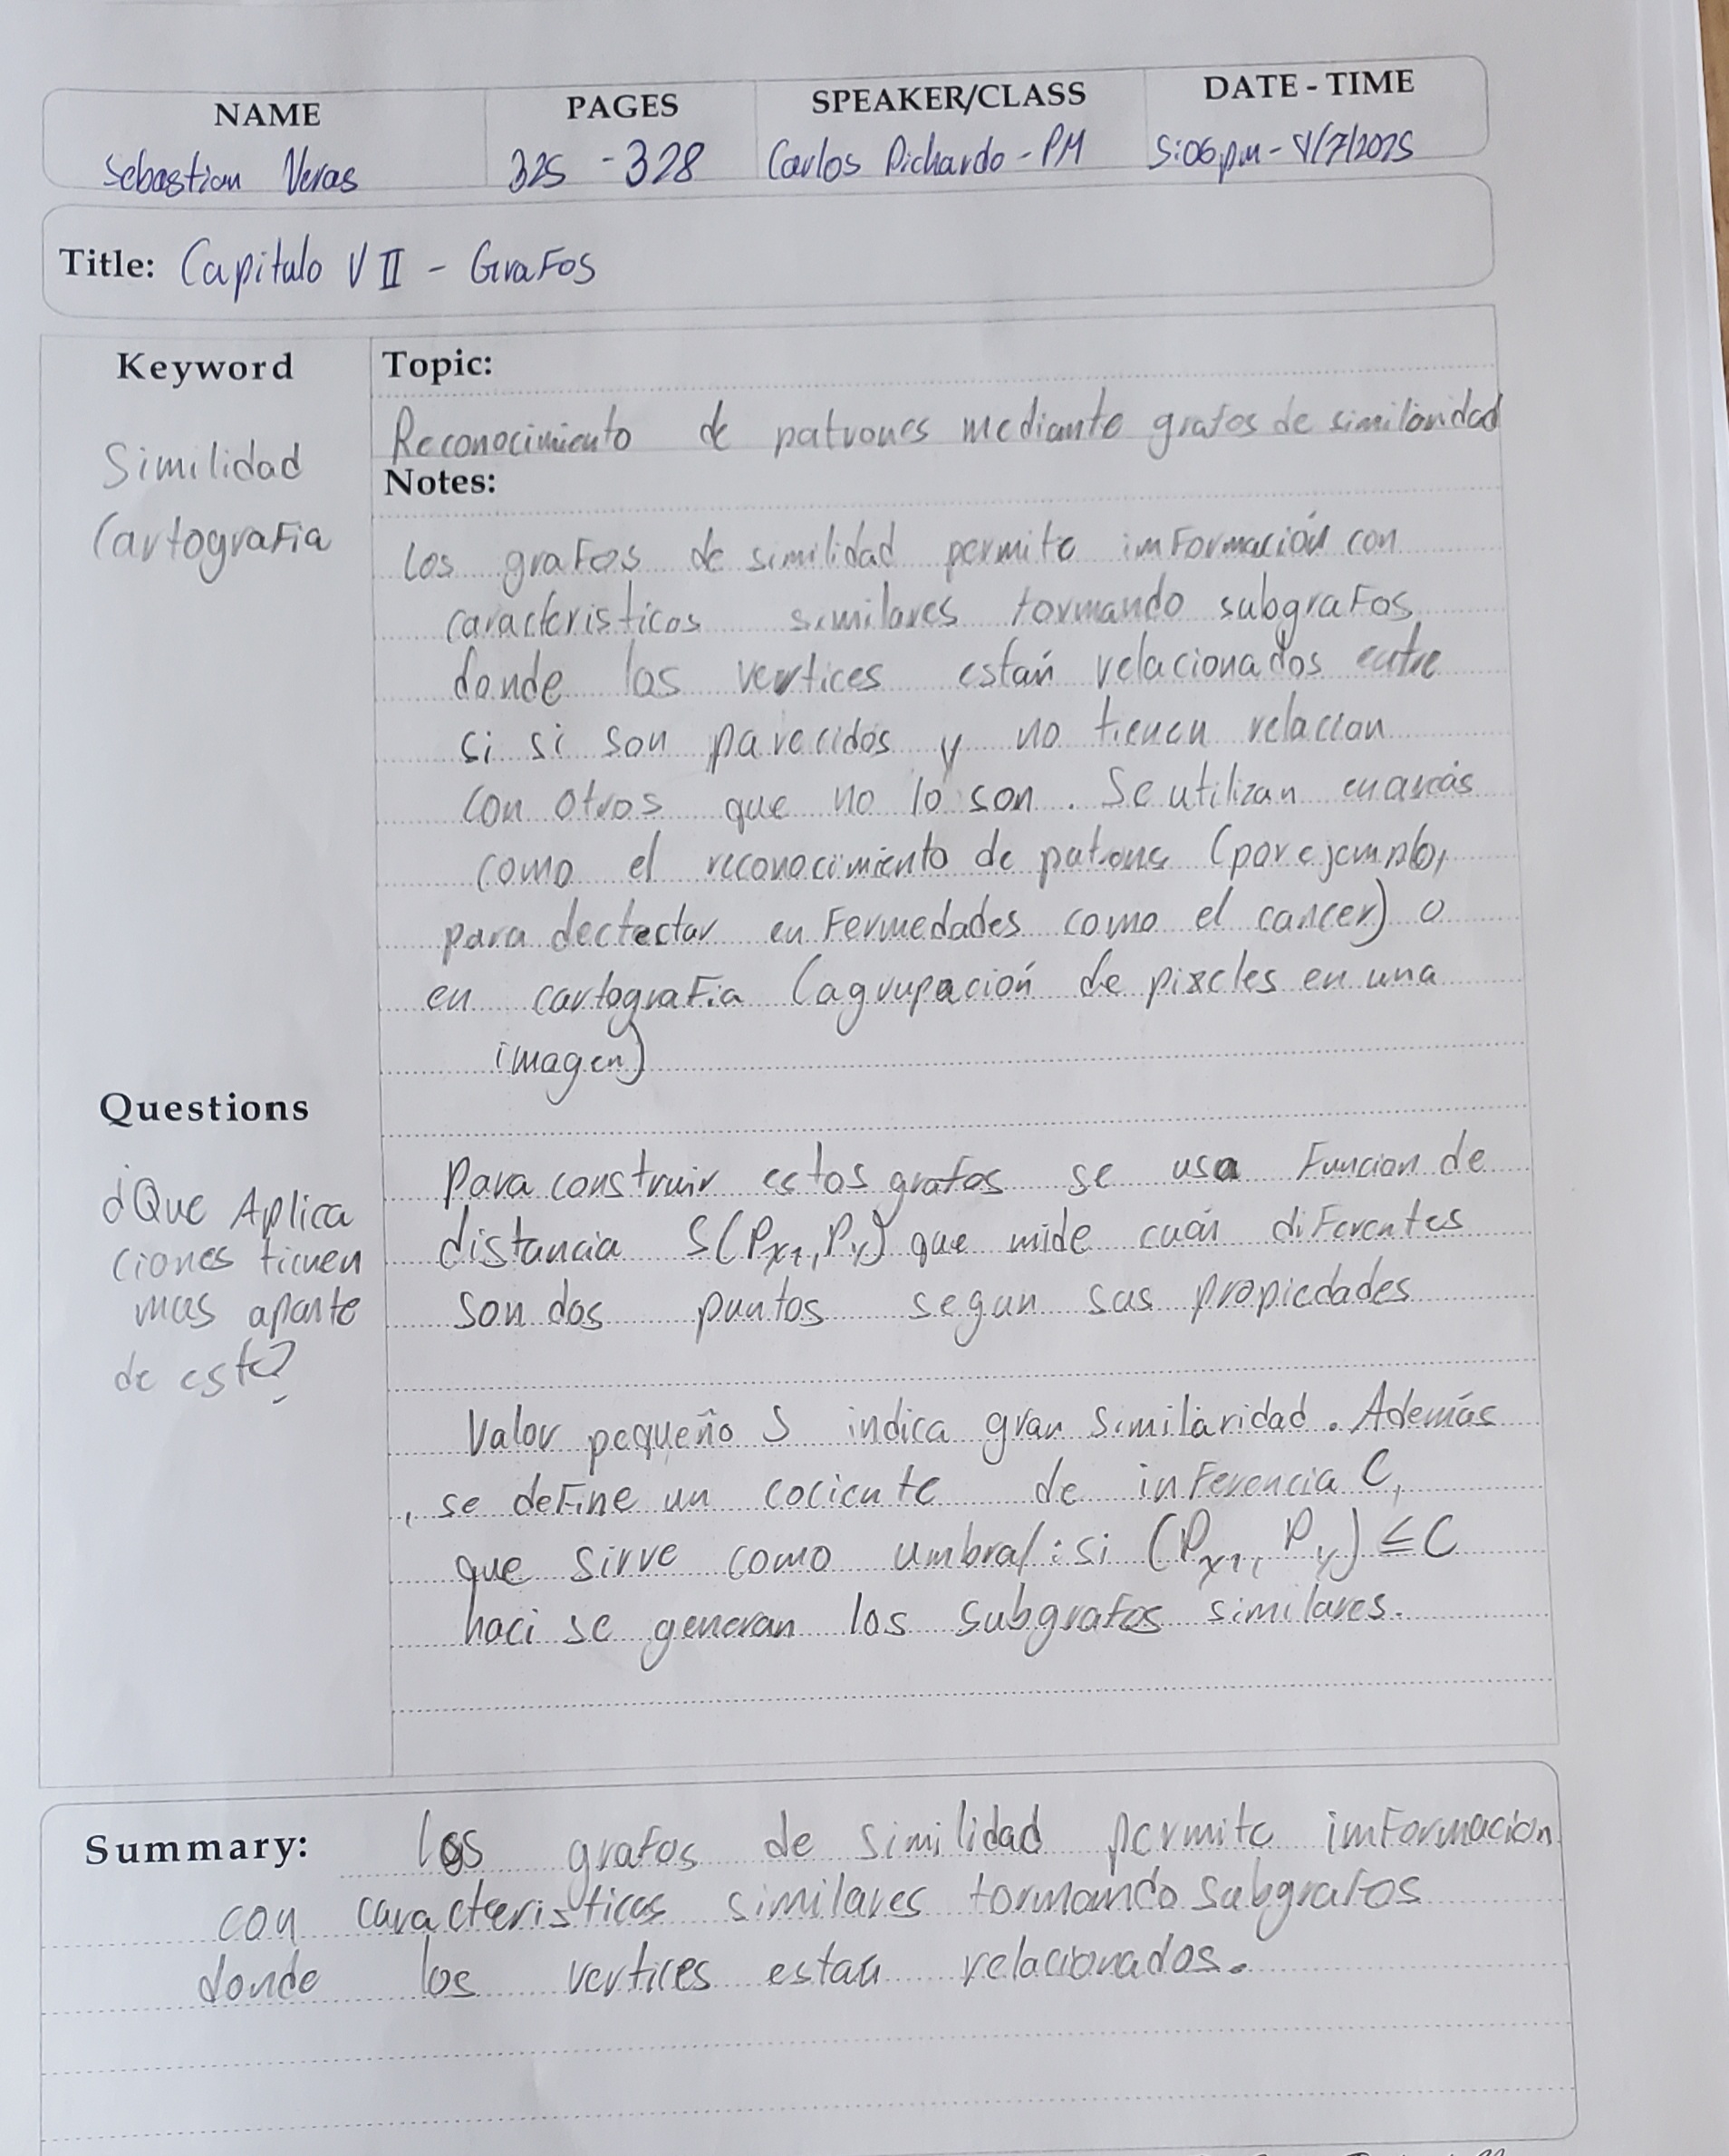 NAME PAGES SPEAKER/CLASS DATE - TIME
Sebastian Veras 325 - 328 Carlos Pichardo - PM 5:06pm - /7/2025
Title: Capitulo VII - Grafos
Keyword
Similidad
Cartografia
Topic:
Reconocimiento de patrones mediante grafos de similaridad
Notes:
los grafos de similidad permite imformación con
caracteristicas similares formando subgrafos
donde las vertices están relacionados entre
si si son parecidos y no tienen relacion
con otros que no lo son. Se utilizan en
como el reconocimiento de patrons (por ejemplo,
para dectectar enfermedades como el cancer) o
en cartografia (agrupación de pixeles en una
imagen)
Questions
¿Que Aplica
ciones tienen
mas aparte
de este?
Para construir estos grafos se usa Funcion de
distancia S(Px1, Py) que mide cuán diferentes
son dos puntos segun sus propiedades
Valor pequeño S indica gran similaridad. Además
, se define un cociente de inferencia C,
que sirve como umbral: si (Px1, Py) ≤ C
haci se generan los subgrafos similares.
Summary: los grafos de similidad permite imformación
con caracteristicas similares formando subgrafos
donde los vertices estan relacionados.